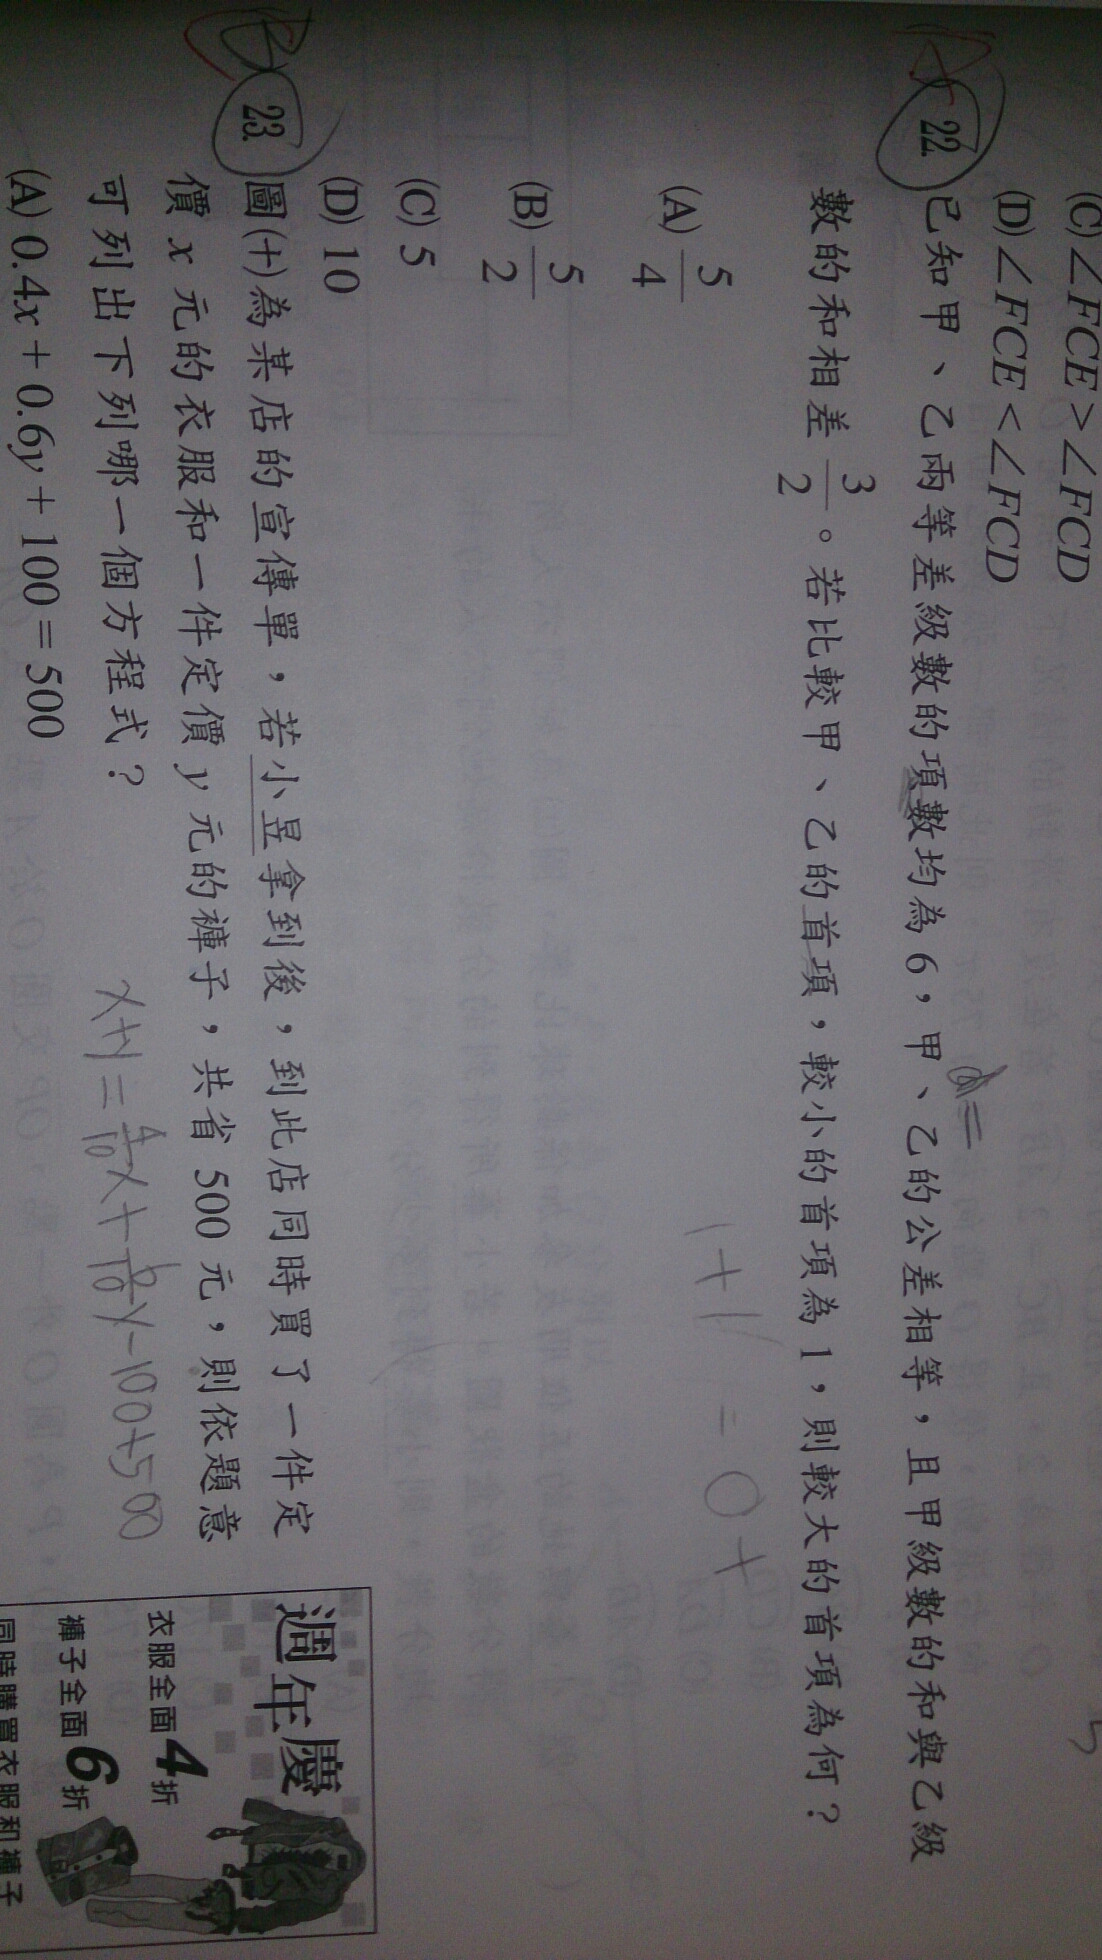 (C) ∠FCE > ∠FCD
(D) ∠FCE < ∠FCD
22. 已知甲、乙兩等差級數的項數均為 6，甲、乙的公差相等，且甲級數的和與乙級
數的和相差 3/2。若比較甲、乙的首項，較小的首項為 1，則較大的首項為何？
(A) 5/4
(B) 5/2
(C) 5
(D) 10
1+1 = 0+
d=
23. 圖(十)為某店的宣傳單，若小昱拿到後，到此店同時買了一件定
價 x 元的衣服和一件定價 y 元的褲子，共省 500 元，則依題意
可列出下列哪一個方程式？
x+y = 4/10 x + 6/10 y - 100 + 500
(A) 0.4x + 0.6y + 100 = 500
週年慶
衣服全面4折
褲子全面6折
同時購買衣服和褲子